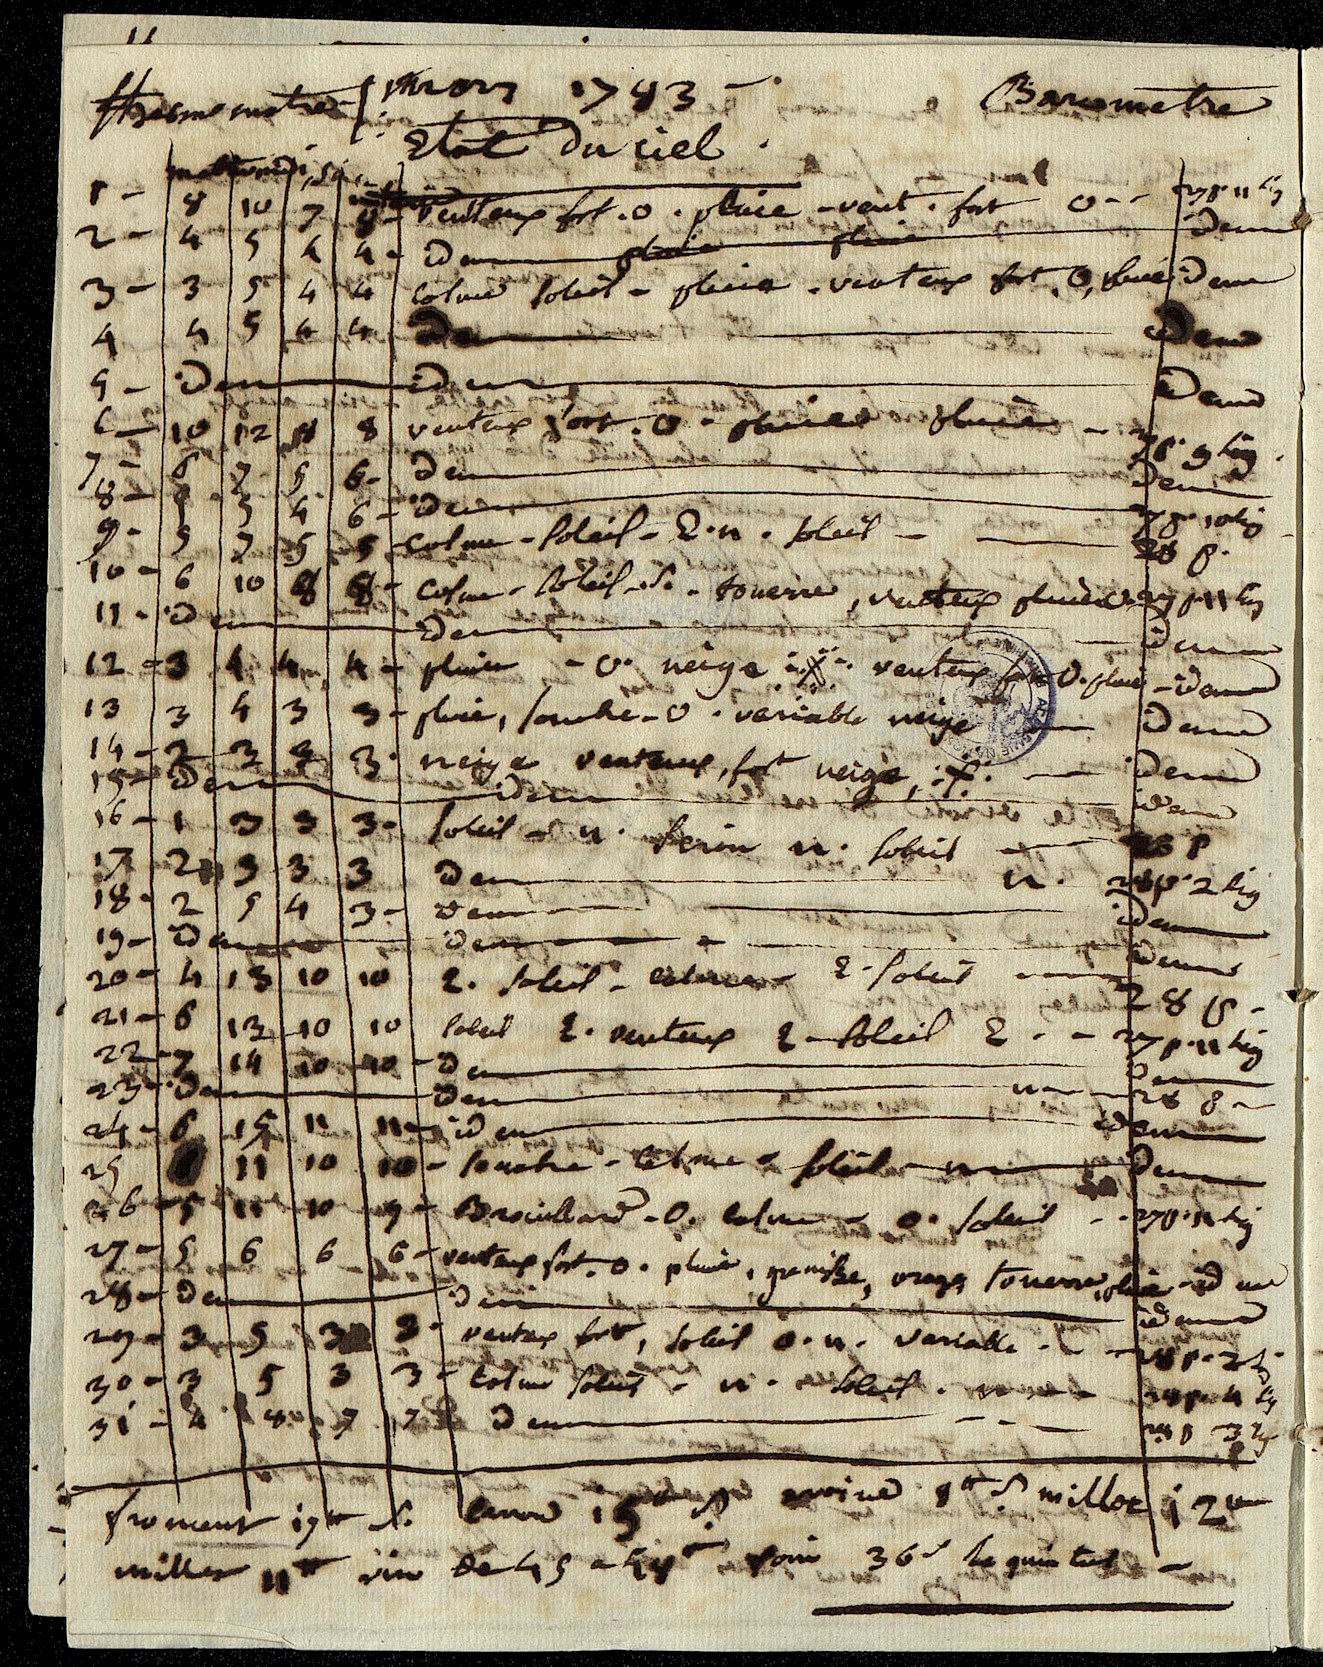 thermometre mars 1783 Barometre
Etat Du ciel
matin midi soir
1 - 8 10 7 8 - venteux fort. O. pluie - vent. fort O - - 27 p 11 lig
2 - 4 5 4 4 - idem idem
3 - 3 5 4 4 calme soleil - pluie - venteux fort. O, pluie idem
4 4 5 4 4 - idem idem
5 - idem idem idem
6 - 10 12 8 8 venteux fort. O - pluies pluie - 27 p. 9 lig.
7 - 6 7 5 6 - idem idem
8 - 5 4 6 - idem 27 p. 10 lig
9 - 5 7 5 5 - calme - soleil - E. n. soleil - 28 p.
10 - 6 10 8 8 - calme - soleil - S. - tonerre, venteux pluie 27 p 11 lig
11 - idem idem idem
12 - 3 4 4 4 - pluie - O. neige venteux fort O. pluie - idem
13 3 4 3 3 - pluie, sombre - O. variable neige idem
14 - 2 3 3 3 . neige venteux, fort neige, idem
15 - idem idem idem
16 - 1 3 3 3 - soleil - n. serin n. soleil 28 p
17 2 5 3 3 idem n. 28 p. 2 lig
18 - 2 5 4 3 - idem idem
19 - idem idem idem
20 - 4 13 10 10 E. soleil - calme - E. soleil 28 p -
21 - 6 12 10 10 soleil E. venteux E - soleil E - - 27 p. 11 lig
22 - 7 14 10 10 - idem idem
23 - idem idem n - 28 p -
24 - 6 15 11 11 - idem idem
25 11 10 10 - sombre - calme - soleil - n idem
26 - 5 11 10 9 - Brouillard - O. calme - O. soleil - - 27 p. 11 lig
27 - 5 6 6 6 - venteux fort. O. pluie, orage tonerre, pluie - idem
28 - idem idem idem
29 - 3 5 3 3 - venteux fort, soleil O. n. variable - 28 p. 2 li
30 - 3 5 3 3 - calme soleil - n. soleil. n - 28 p. 4 lig
31 - 4 8 7 7 idem 28 p 3 lig
froment 17 tt S. 15 tt avoine 8 tt S. millot 12 tt
millet 11 tt vin de 45 a foin 36 s le quintal -